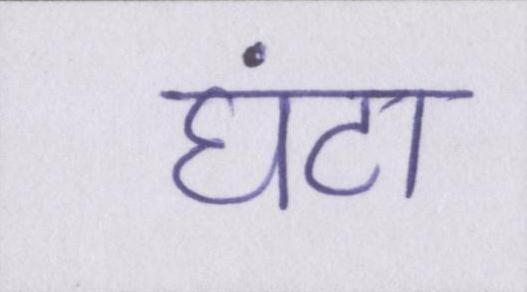 घंटा